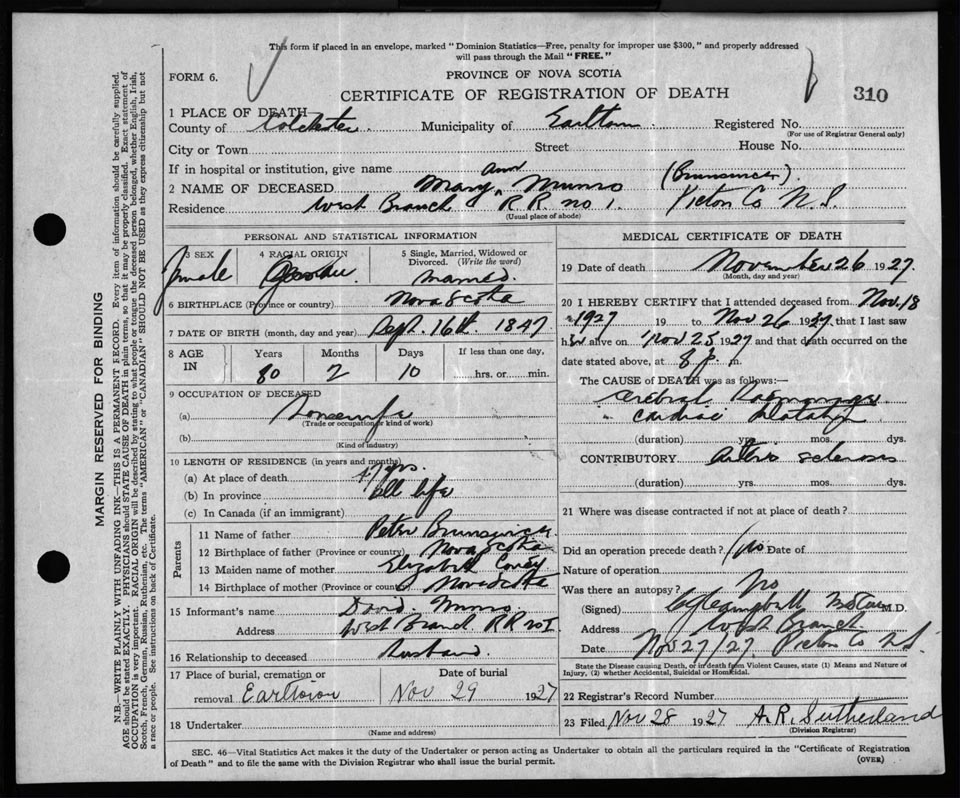 This form if placed in an envelope, marked "Dominion Statistics—Free, penalty for improper use $300," and properly addressed
will pass through the Mail "FREE."
FORM 6.
PROVINCE OF NOVA SCOTIA
CERTIFICATE OF REGISTRATION OF DEATH
310
1 PLACE OF DEATH
County of Colchester Municipality of Earltown Registered No.
(For use of Registrar General only)
City or Town Street House No.
If in hospital or institution, give name
2 NAME OF DECEASED Mary Ann Munro
Residence West Branch R R no 1. Pictou Co N S
(Usual place of abode)
PERSONAL AND STATISTICAL INFORMATION
3 SEX
Female
4 RACIAL ORIGIN
5 Single, Married, Widowed or Divorced. (Write the word)
Married
6 BIRTHPLACE (Province or country) Nova Scotia
7 DATE OF BIRTH (month, day and year) Sept. 16th. 1847
8 AGE IN
Years Months Days If less than one day,
80 2 10 hrs. or min.
9 OCCUPATION OF DECEASED
(a) Housewife
(Trade or occupation or kind of work)
(b)
(Kind of industry)
10 LENGTH OF RESIDENCE (in years and months)
(a) At place of death yrs.
(b) In province all life
(c) In Canada (if an immigrant)
Parents
11 Name of father Peter
12 Birthplace of father (Province or country) Nova Scotia
13 Maiden name of mother Elizabeth
14 Birthplace of mother (Province or country) Nova Scotia
15 Informant's name David Munro
Address West Branch R R no 1
16 Relationship to deceased Husband
17 Place of burial, cremation or removal Earltown
Date of burial
Nov 29 1927
18 Undertaker
(Name and address)
MEDICAL CERTIFICATE OF DEATH
19 Date of death November 26 1927
(Month, day and year)
20 I HEREBY CERTIFY that I attended deceased from Nov. 18
1927 19 to Nov 26 1927, that I last saw
her alive on Nov 25 1927 and that death occurred on the
date stated above, at 8 p. m.
The CAUSE of DEATH was as follows:—
Cerebral Haemorrhage
Cardiac
(duration) yrs. mos. dys.
CONTRIBUTORY Arterio sclerosis
(duration) yrs. mos. dys.
21 Where was disease contracted if not at place of death?
Did an operation precede death? No Date of
Nature of operation
Was there an autopsy? No
(Signed) Campbell M.D.
Address West Branch
Date Nov 27/27 Pictou Co N.S.
State the Disease causing Death, or in death from Violent Causes, state (1) Means and Nature of
Injury, (2) whether Accidental, Suicidal or Homicidal.
22 Registrar's Record Number
23 Filed Nov 28 1927 A. R. Sutherland
(Division Registrar)
SEC. 46—Vital Statistics Act makes it the duty of the Undertaker or person acting as Undertaker to obtain all the particulars required in the "Certificate of Registration
of Death" and to file the same with the Division Registrar who shall issue the burial permit.
(OVER)
MARGIN RESERVED FOR BINDING
N.B.—WRITE PLAINLY WITH UNFADING INK—THIS IS A PERMANENT RECORD. Every item of information should be carefully supplied.
AGE should be stated EXACTLY. PHYSICIANS should STATE CAUSE OF DEATH in plain terms, so that it may be properly classified. Exact statement of
OCCUPATION is very important. RACIAL ORIGIN will be described by stating to what people or tongue the deceased person belonged, whether English, Irish,
Scotch, French, German, Russian, Ruthenian, etc. The terms "AMERICAN" or "CANADIAN" SHOULD NOT BE USED as they express citizenship but not
a race or people. See instructions on back of Certificate.